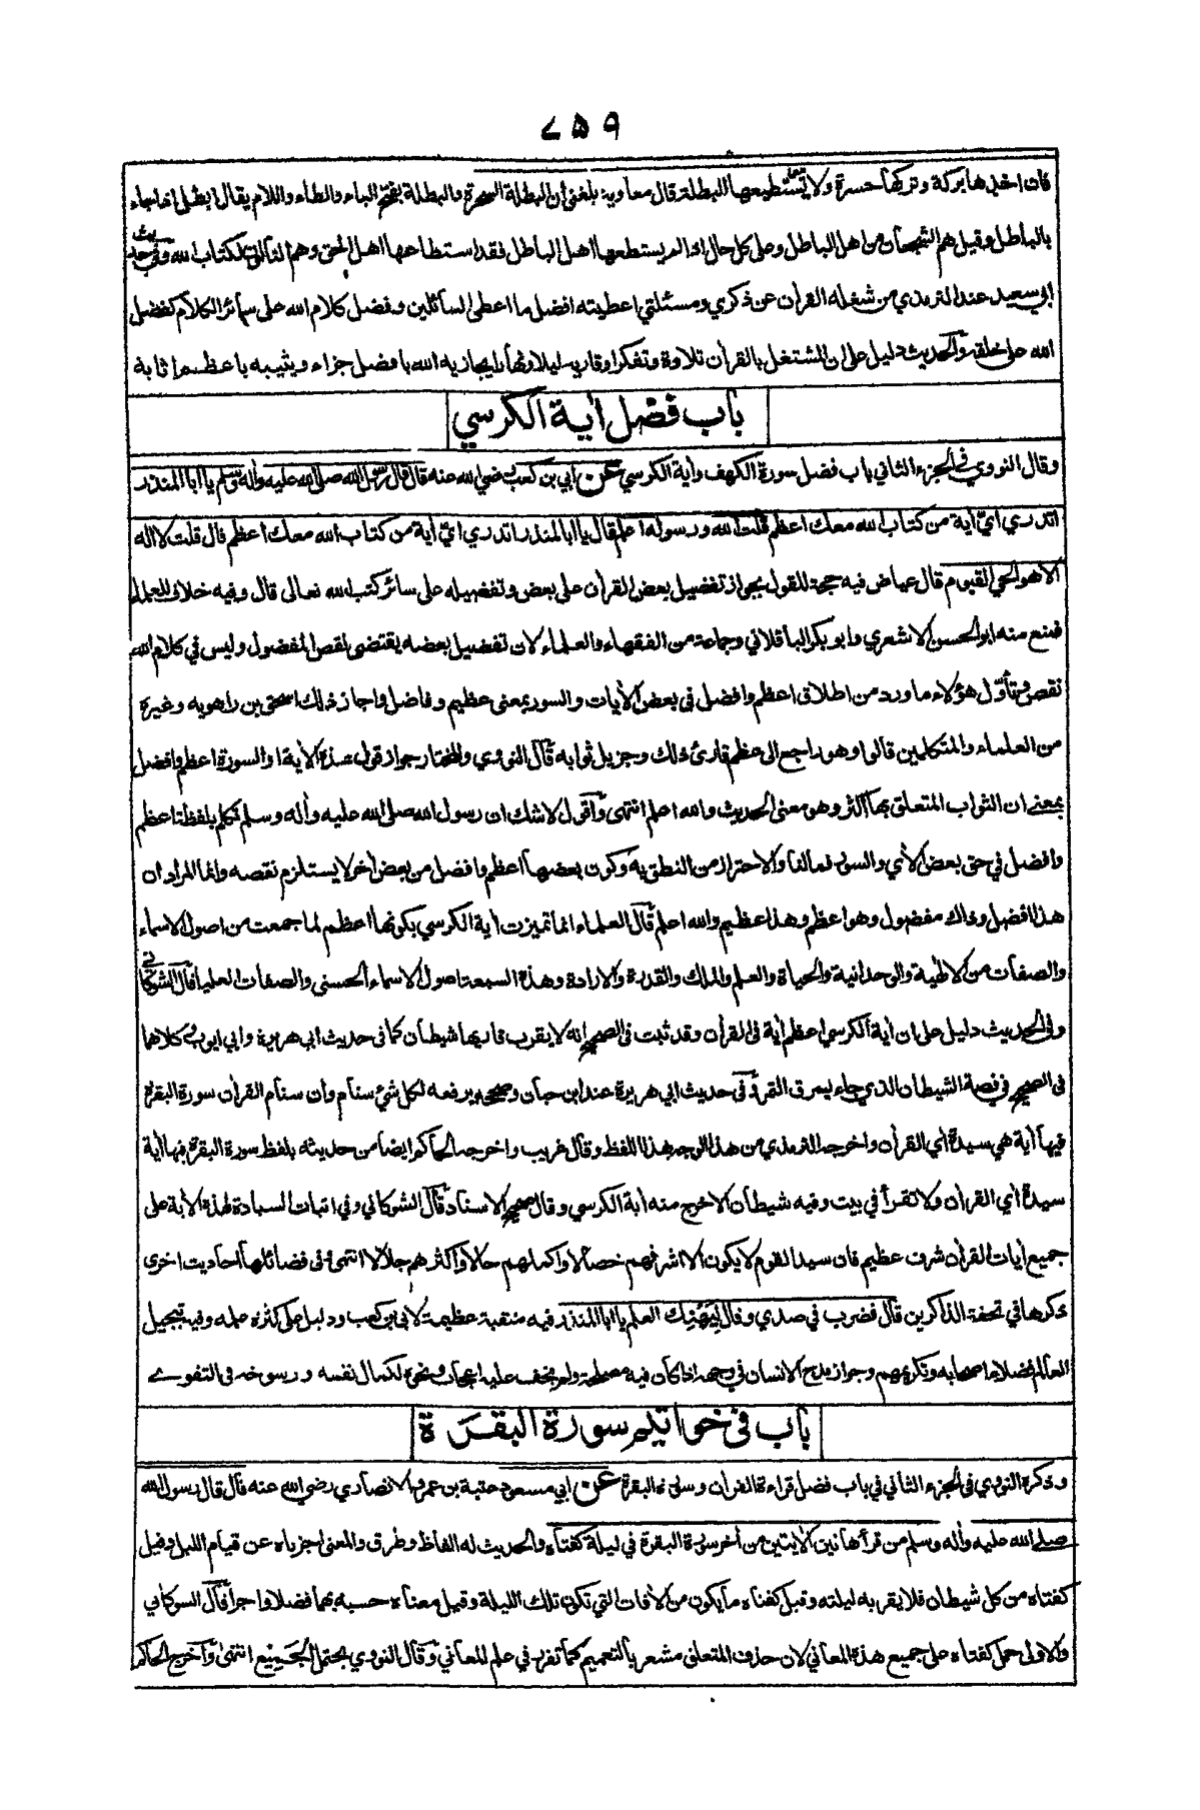 ٧٥٩
فان اخذها بركة وتركها حسرة ولا تستطيعها البطلة قال معاوية بلغني ان البطلة السحرة والبطلة بفتح الباء والطاء واللام يقال ابطل اذا جاء
بالباطل وقيل هم الشجعان من اهل الباطل وعلى كل حال اذا لم يستطعها اهل الباطل فقد استطاعها اهل الحق وهم التالون لكتاب الله وفي حديث
ابي سعيد عند الترمذي من شغله القرأن عن ذكري ومسئلتي اعطيته افضل ما اعطي السائلين وفضل كلام الله على سائر الكلام كفضل
الله على خلقه والحديث دليل على ان المشتغل بالقرأن تلاوة وتفكرا وقاريه ليلا ونهارا يجازيه الله بافضل جزاء ويثيبه باعظم اثابة
باب فضل أية الكرسي
وقال النووي في الجزء الثاني باب فضل سورة الكهف وأية الكرسي عن أبي بن كعب رضي الله عنه قال قال رسول الله صلى الله عليه وأله وسلم يا ابا المنذر
اتدري ايّ أية من كتاب الله معك اعظم قلت الله ورسوله اعلم قال يا ابا المنذر اتدري ايّ أية من كتاب الله معك اعظم قال قلت لا اله
الا هو الحي القيوم قال عياض فيه حجة للقول بجواز تفضيل بعض القرأن على بعض وتفضيله على سائر كتب الله تعالى قال وفيه خلاف للعلماء
فمنع منه ابو الحسن الاشعري وابو بكر الباقلاني وجماعة من الفقهاء والعلماء لان تفضيل بعضه يقتضي نقص المفضول وليس في كلام الله
نقص وتأوّل هؤلاء ما ورد من اطلاق اعظم وافضل في بعض الأيات والسور بمعنى عظيم وفاضل واجاز ذلك اسحق بن راهويه وغيره
من العلماء والمتكلمين قالوا وهو راجع الى عظم قارئ ذلك وجزيل ثوابه قال النووي والمختار جواز قول هذه الأية او السورة اعظم وافضل
بمعنى ان الثواب المتعلق بها اكثر وهو معنى الحديث والله اعلم انتهى واقول لا شك ان رسول الله صلى الله عليه وأله وسلم تكلم بلفظة اعظم
وافضل في حق بعض الأي والسور فما لنا والاحتراز من النطق به وكون بعضها اعظم وافضل من بعض أخر لا يستلزم نقصه وانما المراد ان
هذا افضل وذاك مفضول وهو اعظم وهذا عظيم والله اعلم قال العلماء انما تميزت أية الكرسي بكونها اعظم لما جمعت من اصول الاسماء
والصفات من الالهية والوحدانية والحياة والعلم والملك والقدرة والارادة وهذه السبعة اصول الاسماء الحسنى والصفات العليا قال الشوكاني
وفي الحديث دليل على ان أية الكرسي اعظم أية في القرأن وقد ثبت في الصحيح انه لا يقرب قاريها شيطان كما في حديث ابي هريرة وابي ايوب كلاهما
في الصحيح في قصة الشيطان الذي جاء يسرق التمر وفي حديث ابي هريرة عند ابن حبان وصححه يرفعه لكل شيء سنام وان سنام القرأن سورة البقرة
فيها أية هي سيدة أي القرأن واخرجه الترمذي من هذا الوجه بهذا اللفظ وقال غريب واخرجه الحاكم ايضا من حديثه بلفظ سورة البقرة فيها أية
سيدة أي القرأن ولا تقرأ في بيت وفيه شيطان الا خرج منه أية الكرسي وقال صحيح الاسناد قال الشوكاني وفي اثبات السيادة لهذه الأية على
جميع أيات القرأن شرف عظيم فان سيد القوم لا يكون الا اشرفهم خصالا واكملهم حالا واكثرهم جلالا انتهى وفي فضائلها احاديث اخرى
ذكرها في تحفة الذاكرين قال فضرب في صدري وقال ليهنك العلم يا ابا المنذر فيه منقبة عظيمة لأبي بن كعب ودليل على كثرة علمه وفيه تبجيل
العالم فضلاء اصحابه وتكريمهم وجواز مدح الانسان في وجهه اذا كان فيه مصلحة ولم يخف عليه اعجاب ونحوه لكمال نفسه ورسوخه في التقوى
باب في خواتيم سورة البقرة
وذكره النووي في الجزء الثاني في باب فضل قراءة القرأن وسورة البقرة عن ابي مسعود عتبة بن عمرو الانصاري رضي الله عنه قال قال رسول الله
صلى الله عليه وأله وسلم من قرأ هاتين الأيتين من أخر سورة البقرة في ليلة كفتاه والحديث له الفاظ وطرق والمعنى اجزياه عن قيام الليل وقيل
كفتاه من كل شيطان فلا يقربه ليلته وقيل كفتاه ما يكون من الأفات التي تكون تلك الليلة وقيل معناه حسبه بهما فضلا واجرا قال الشوكاني
والاولى حمل كفتاه على جميع هذه المعاني لان حذف المتعلق مشعر بالتعميم كما تقرر في علم المعاني وقال النووي يحتمل الجميع انتهى واخرج الحاكم